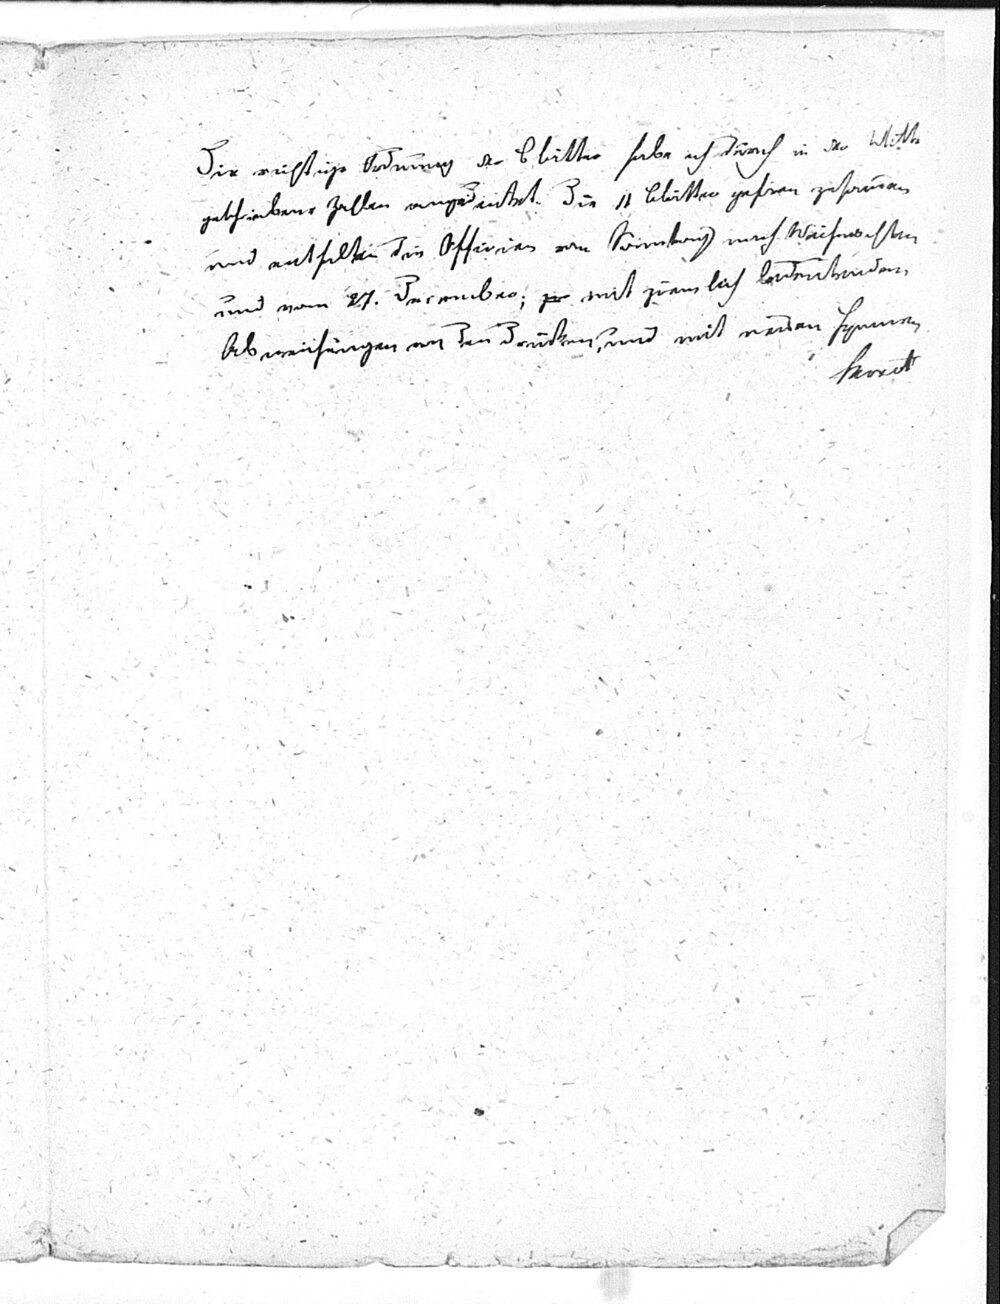 Die richtige Ordnung der Blätter habe ich durch in der Mitte
geschriebene Zahlen angedeutet. Die 11 Blätter gehören zusammen
und enthalten die Officien vom Sonntag nach Weihnachten
und vom 27. December; mit ziemlich bedeutenden
Abweichungen von den Drucken, und mit neuen Hymnen